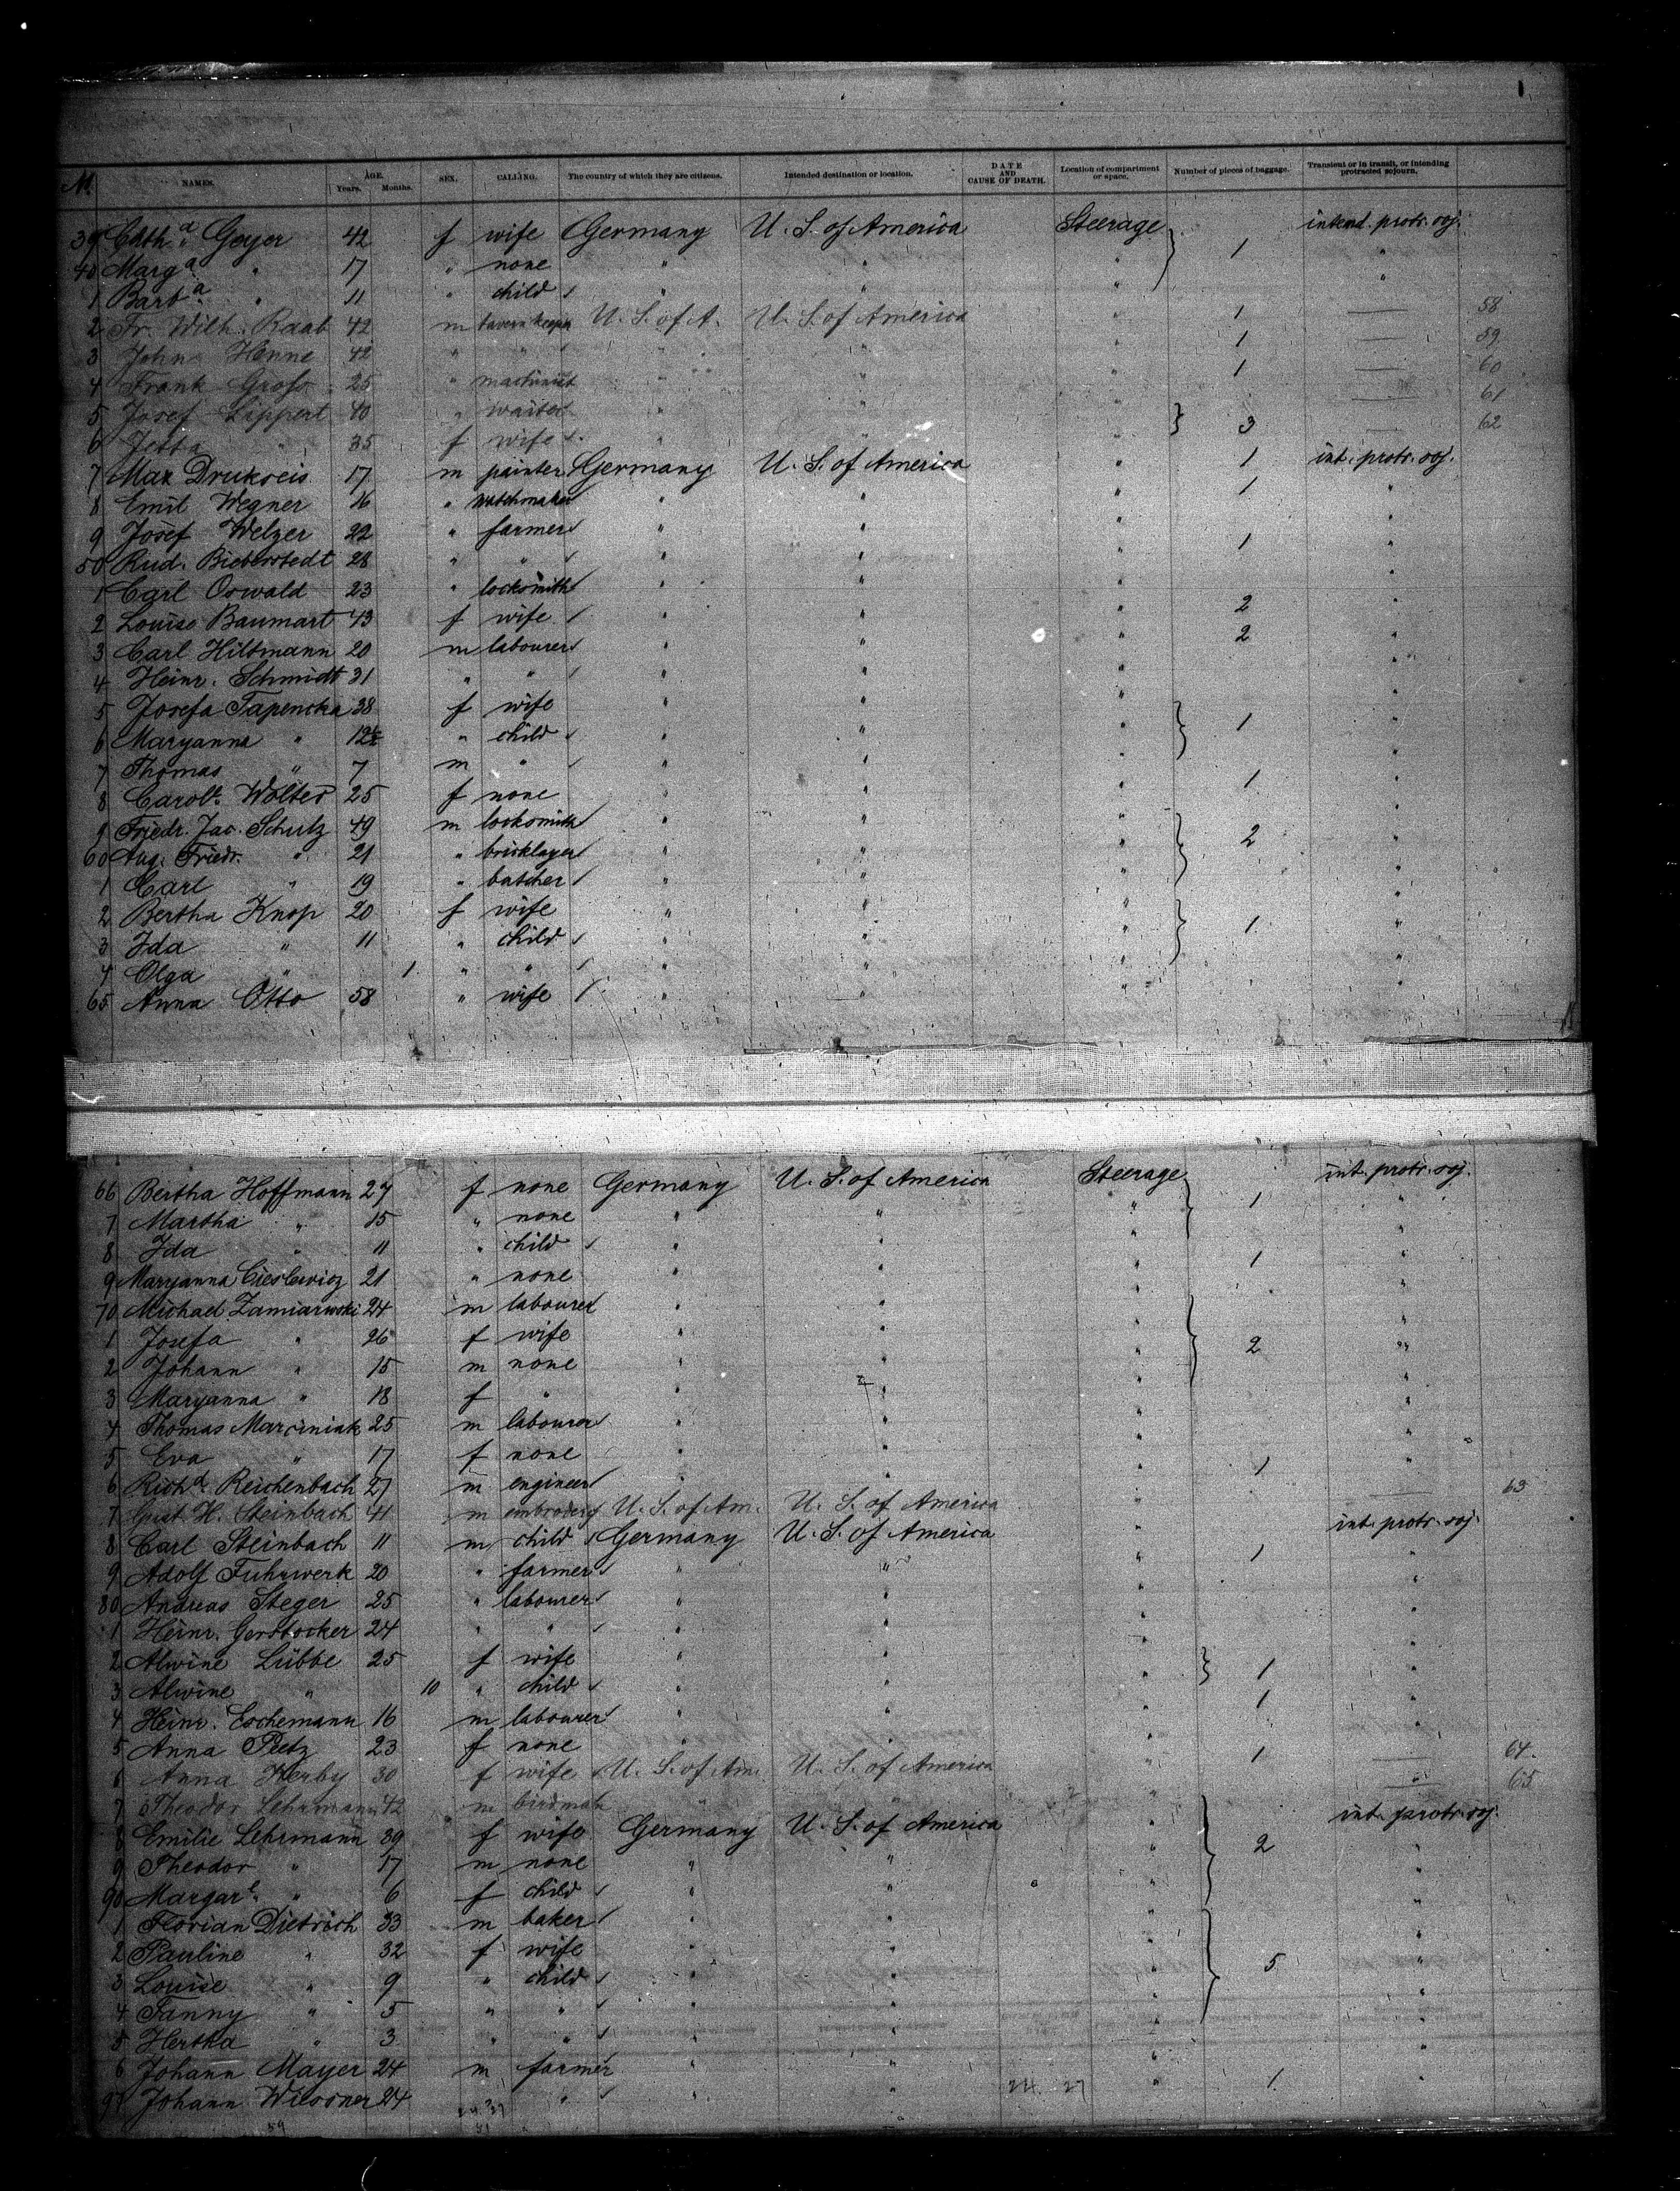 NAMES. AGE. Years. Months. SEX. CALLING. The country of which they are citizens. Intended destination or location. DATE AND CAUSE OF DEATH. Location of compartment or space. Number of pieces of baggage. Transient or in transit, or intending protracted sojourn.
39 Cath.a Geyer 42 f wife Germany U. S. of America Steerage 1 intend. protr. soj.
40 Marg.a " 17 " none " " " "
1 Barb.a " 11 " child " " " "
2 Fr. Wilh. Raab 42 m tavern keeper U. S. of A. U. S. of America " 1 — 58
3 John Henne 42 " " " " " 1 — 59
4 Frank Gross 25 " machinist " " " 1 — 60
5 Josef Lippert 40 " waiter " " " 3 — 61
6 Jetta " 35 f wife " " " — 62
7 Max Drukseis 17 m painter Germany U. S. of America " 1 int. protr. soj.
8 Emil Wegner 16 " watchmaker " " " 1 "
9 Josef Welzer 22 " farmer " " " "
50 Rud. Bieberstedt 28 " " " " " 1 "
1 Carl Oswald 23 " locksmith " " " "
2 Louise Baumart 43 f wife " " " 2 "
3 Carl Hiltmann 20 m labourer " " " 2 "
4 Heinr. Schmidt 31 " " " " " "
5 Josefa Tapencka 38 f wife " " " 1 "
6 Maryanna " 12 " child " " " "
7 Thomas " 7 m " " " " "
8 Carole. Wolter 25 f none " " " 1 "
9 Friedr. Jac. Schulz 49 m locksmith " " " 2 "
60 Aug. Friedr. " 21 " bricklayer " " " "
1 Carl " 19 " butcher " " " "
2 Bertha Knop 20 f wife " " " 1 "
3 Ida " 11 " child " " " "
4 Olga " 1 " " " " " "
65 Anna Otto 58 " wife " " " "
66 Bertha Hoffmann 27 f none Germany U. S. of America Steerage 1 int. protr. soj.
7 Martha " 15 " none " " " "
8 Ida " 11 " child " " " "
9 Maryanna Cieslewicz 21 " none " " " 1 "
70 Michael Zamiarowski 24 m labourer " " " "
1 Josefa " 26 f wife " " " 2 "
2 Johann " 15 m none " " " "
3 Maryanna " 18 f " " " " "
4 Thomas Marciniak 25 m labourer " " " "
5 Eva " 17 f none " " " "
6 Rich.d Reichenbach 27 m engineer " " " 1 "
7 Gust. H. Steinbach 41 m embroidery U. S. of Am. U. S. of America " — 63
8 Carl Steinbach 11 m child Germany U. S. of America " int. protr. soj.
9 Adolf Fuhrwerk 20 " farmer " " " 1 "
80 Andreas Steger 25 " labourer " " " "
1 Heinr. Gerstocker 24 " " " " " "
2 Alwine Lübbe 25 f wife " " " 1 "
3 Alwine " 10 " child " " " "
4 Heinr. Eschemann 16 m labourer " " " 1 "
5 Anna Peetz 23 f none " " " "
6 Anna Kerby 30 f wife U. S. of Am. U. S. of America " 1 — 64.
7 Theodor Lehrmann 42 m birdman " " " — 65
8 Emilie Lehrmann 39 f wife Germany U. S. of America " 2 int. protr. soj.
9 Theodor " 17 m none " " " "
90 Margar.e " 6 f child " " " "
1 Florian Dietrich 33 m baker " " " "
2 Pauline " 32 f wife " " " 5 "
3 Louise " 9 " child " " " "
4 Fanny " 5 " " " " " "
5 Hertha " 3 " " " " " "
6 Johann Mayer 24 m farmer " " " "
97 Johann Wiessner 24 " " " " 1 "